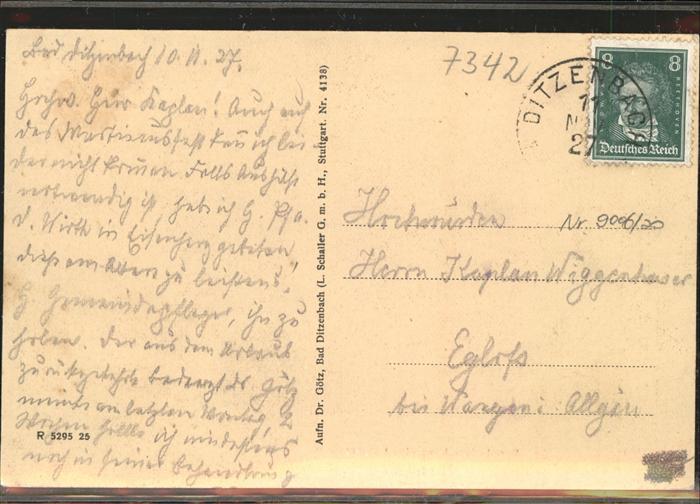 Bad Ditzenbach 10.11.27.
Hochw. Herr Kaplan! Auch auf
das Martinusfest kann ich lei
der nicht kommen. Falls Aushilfe
notwendig ist, hab ich H. Pfa.
d. Wirth in Eisenharz gebeten
diese am Abten zu leisten.
H. Gemeindepfleger, ihn zu
holen. Der aus dem Urlaub
zurückgekehrte Badearzt Dr. Götz
meinte am letzten Montag, 2
Wochen sollte ich mindestens
noch in seiner Behandlung
R 5295 25
Aufn. Dr. Götz, Bad Ditzenbach (L. Schaller G. m. b. H., Stuttgart. Nr. 4138)
7342
DITZENBACH
11
27
8 8
BEETHOVEN
Deutsches Reich
Hochwürden
Nr. 9006/20
Herrn Kaplan Wiggenhauser
Eglofs
bei Wangen i. Allgäu